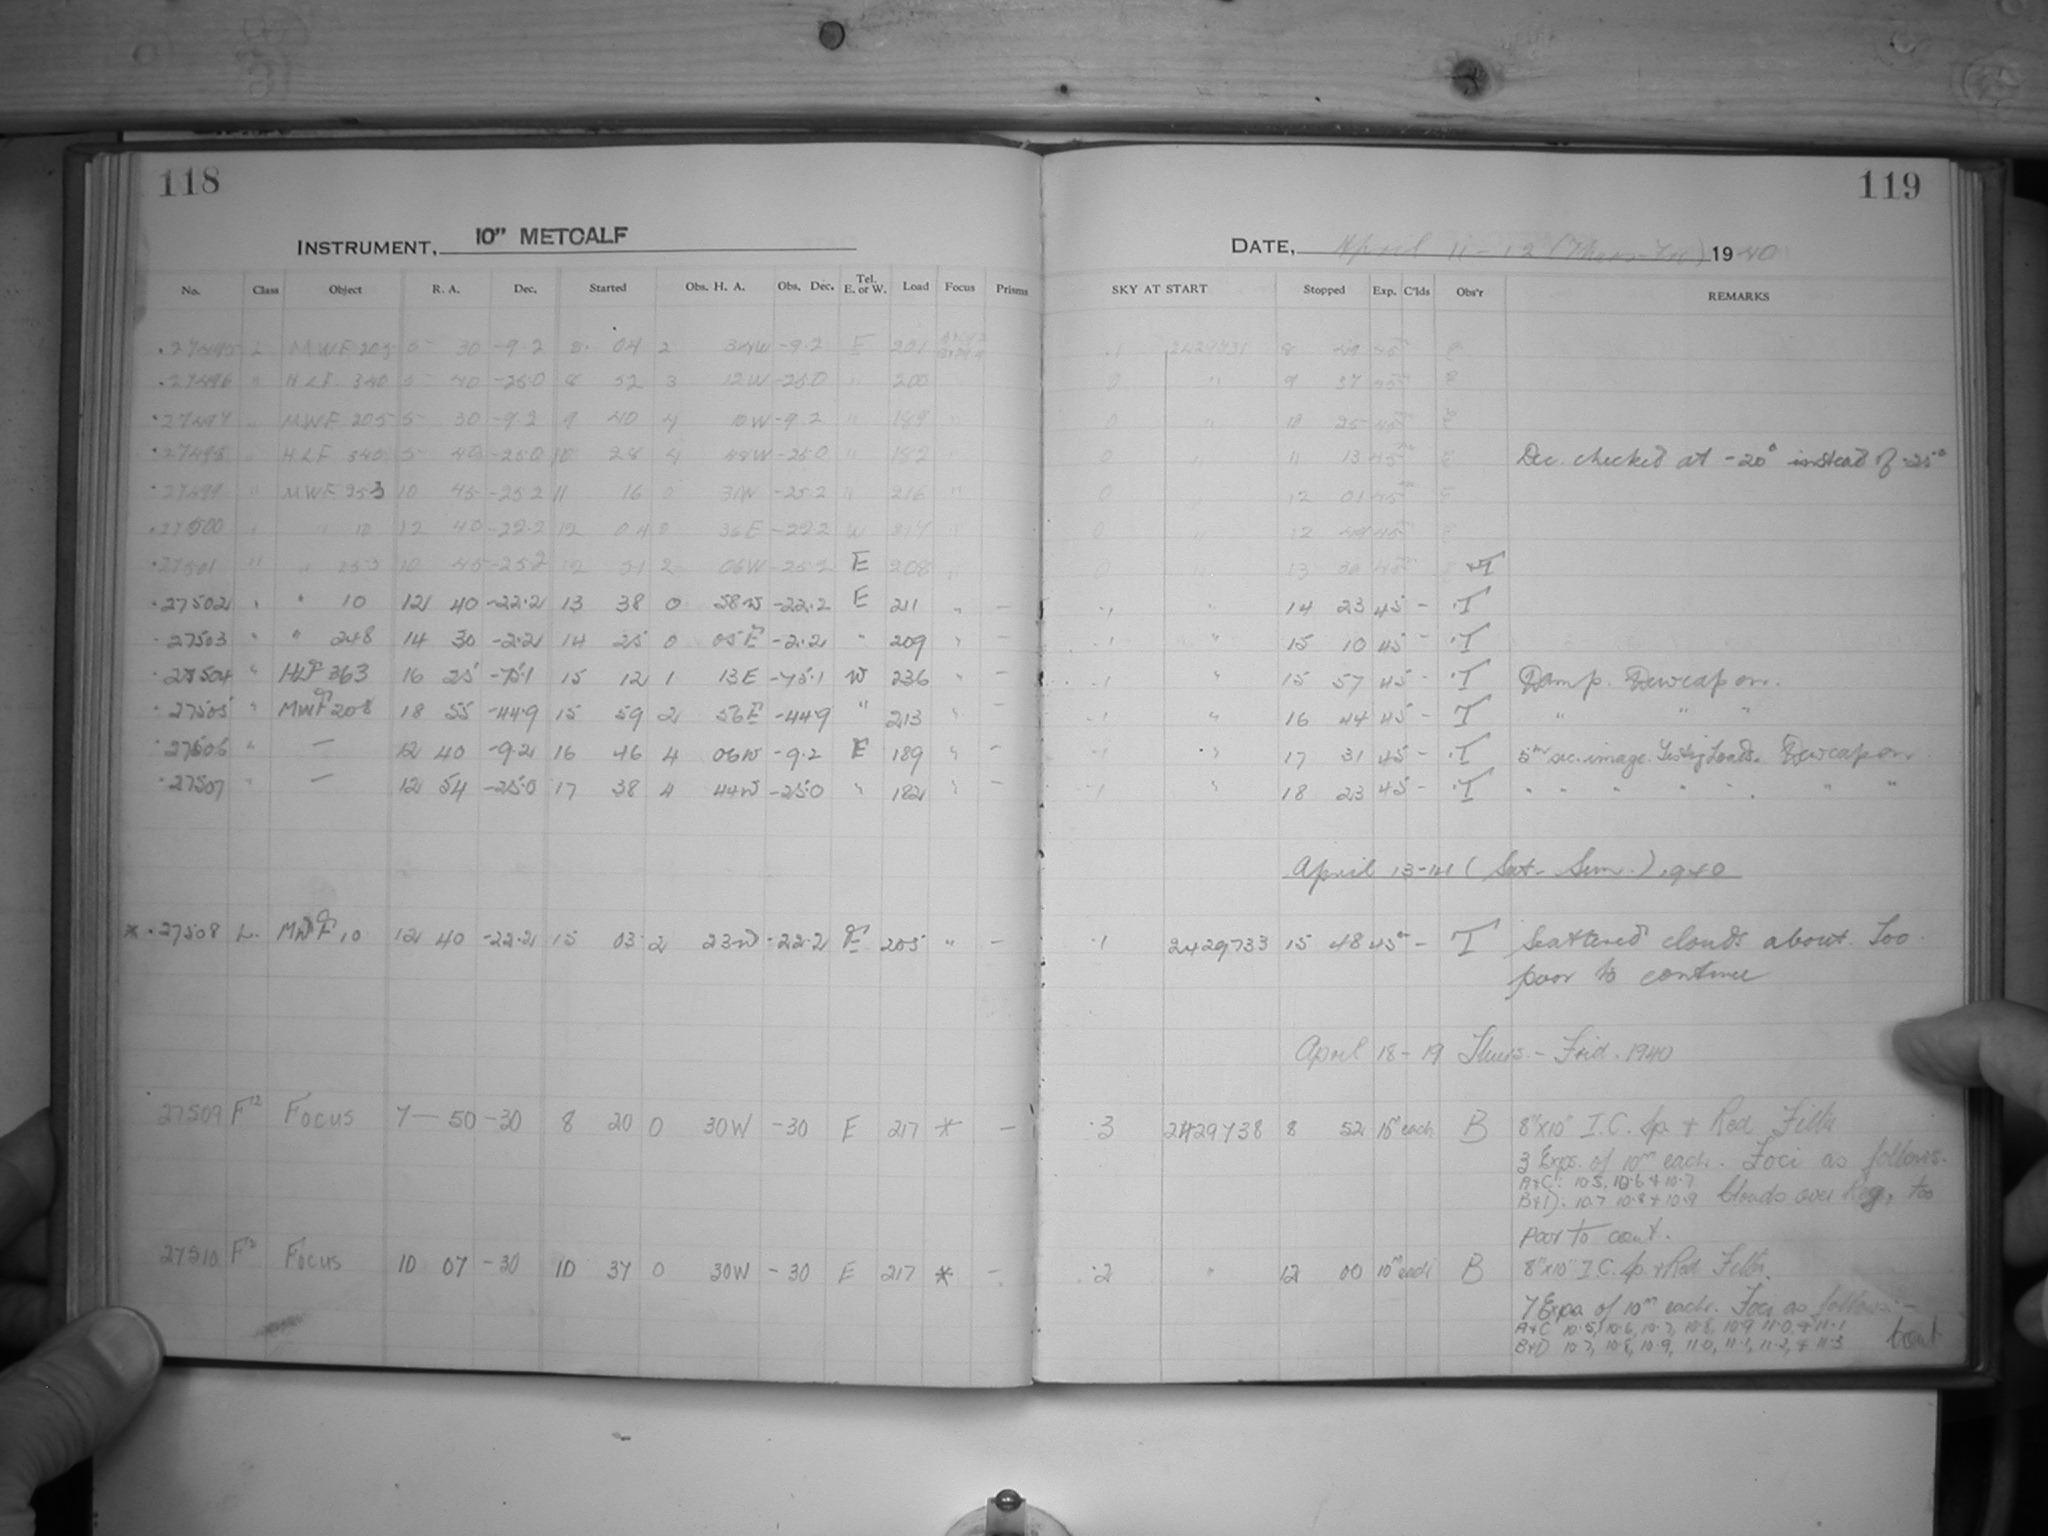 118
119
INSTRUMENT, 10" METCALF
DATE, April 11-12 (Thurs-Fri) 1940
No. Class Object R. A. Dec. Started Obs. H. A. Obs. Dec. Tel. E. or W. Load Focus Prisms SKY AT START Stopped Exp. C'lds Obs'r REMARKS
27495 L MWF 205 5 30 -9.2 8 04 2 34W -9.2 E 201 .1 2429731 8 49 45 E
27496 " HLF 340 5 40 -25.0 8 52 3 12W -25.0 " 200 0 " 9 37 45 E
27497 " MWF 205 5 30 -9.2 9 40 4 10W -9.2 " 189 " 0 " 10 25 45 E
27498 " HLF 340 5 40 -25.0 10 28 4 48W -25.0 " 182 " 0 " 11 13 45 E Dec. checked at -20° instead of -25°
27499 " MWF 253 10 45 -25.2 11 16 0 31W -25.2 " 216 " 0 " 12 01 45 E
27500 " " 10 12 40 -22.2 12 04 0 36E -22.2 W 217 " 0 " 12 49 45 E
27501 " " 253 10 45 -25.2 12 51 2 06W -25.2 E 208 " 0 " 13 36 45 T
27502 " " 10 12 40 -22.2 13 38 0 58W -22.2 E 211 " - .1 " 14 23 45 - T
27503 " " 248 14 30 -2.2 14 25 0 05E -2.2 " 209 " - .1 " 15 10 45 - T
27504 " HLF 363 16 25 -75.1 15 12 1 13E -75.1 W 236 " - .1 " 15 57 45 - T Damp. Dewcap on.
27505 " MWF 208 18 55 -44.9 15 59 2 56E -44.9 " 213 " - .1 " 16 44 45 - T " " "
27506 " - 12 40 -9.2 16 46 4 06W -9.2 E 189 " - .1 " 17 31 45 - T 5m sec. image. Testing Loads. Dewcap on.
27507 " - 12 54 -25.0 17 38 4 44W -25.0 " 182 " - .1 " 18 23 45 - T " " " " " " " "
April 13-14 (Sat-Sun.) 1940
* 27508 L. MWF 10 12 40 -22.2 15 03 2 23W -22.2 E 205 " - .1 2429733 15 48 45m - T Scattered clouds about. Too
poor to continue
April 18-19 Thurs-Frid. 1940
27509 F12 Focus 7 - 50 -30 8 20 0 30W -30 E 217 * - .3 2429738 8 52 10m each B 8"x10" I.C. Sp. + Red Filter
3 Exps. of 10m each. Foci as follows.
A+C: 10.5, 10.6 + 10.7
B+D: 10.7 10.8 + 10.9 Clouds over Reg, too
poor to cont.
27510 F12 Focus 10 07 -30 10 37 0 30W -30 E 217 * - .2 " 12 00 10m each B 8"x10" I.C. Sp. + Red Filter.
7 Exps of 10m each. Foci as follows:-
A+C 10.5, 10.6, 10.7, 10.8, 10.9 11.0, + 11.1
B+D 10.7, 10.8, 10.9, 11.0, 11.1, 11.2, + 11.3 Cont